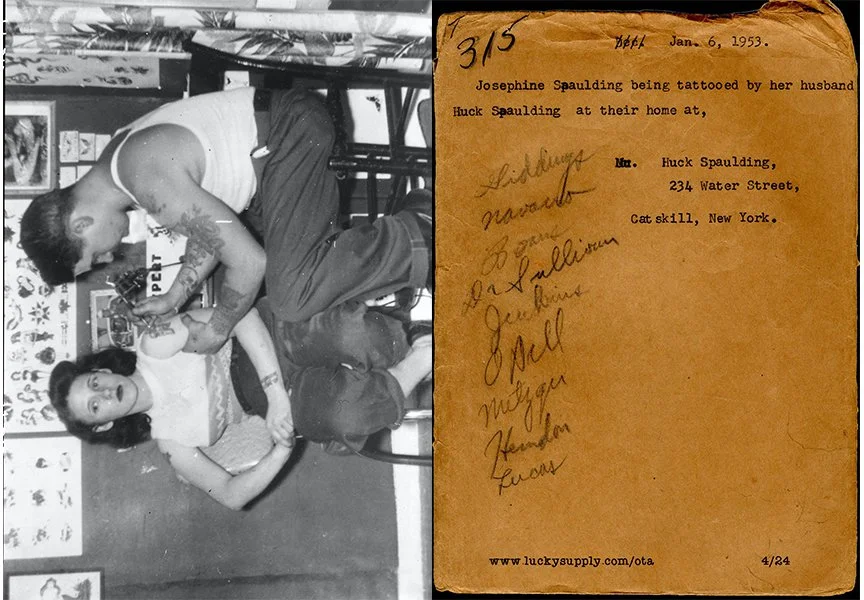 PERT
315
Jan. 6, 1953.
Josephine Spaulding being tattooed by her husband
Huck Spaulding at their home at,
Mr. Huck Spaulding,
234 Water Street,
Catskill, New York.
Giddings
Navarro
Dr Sullivan
Jenkins
O Dell
Metzger
Herndon
Lucas
www.luckysupply.com/ota 4/24